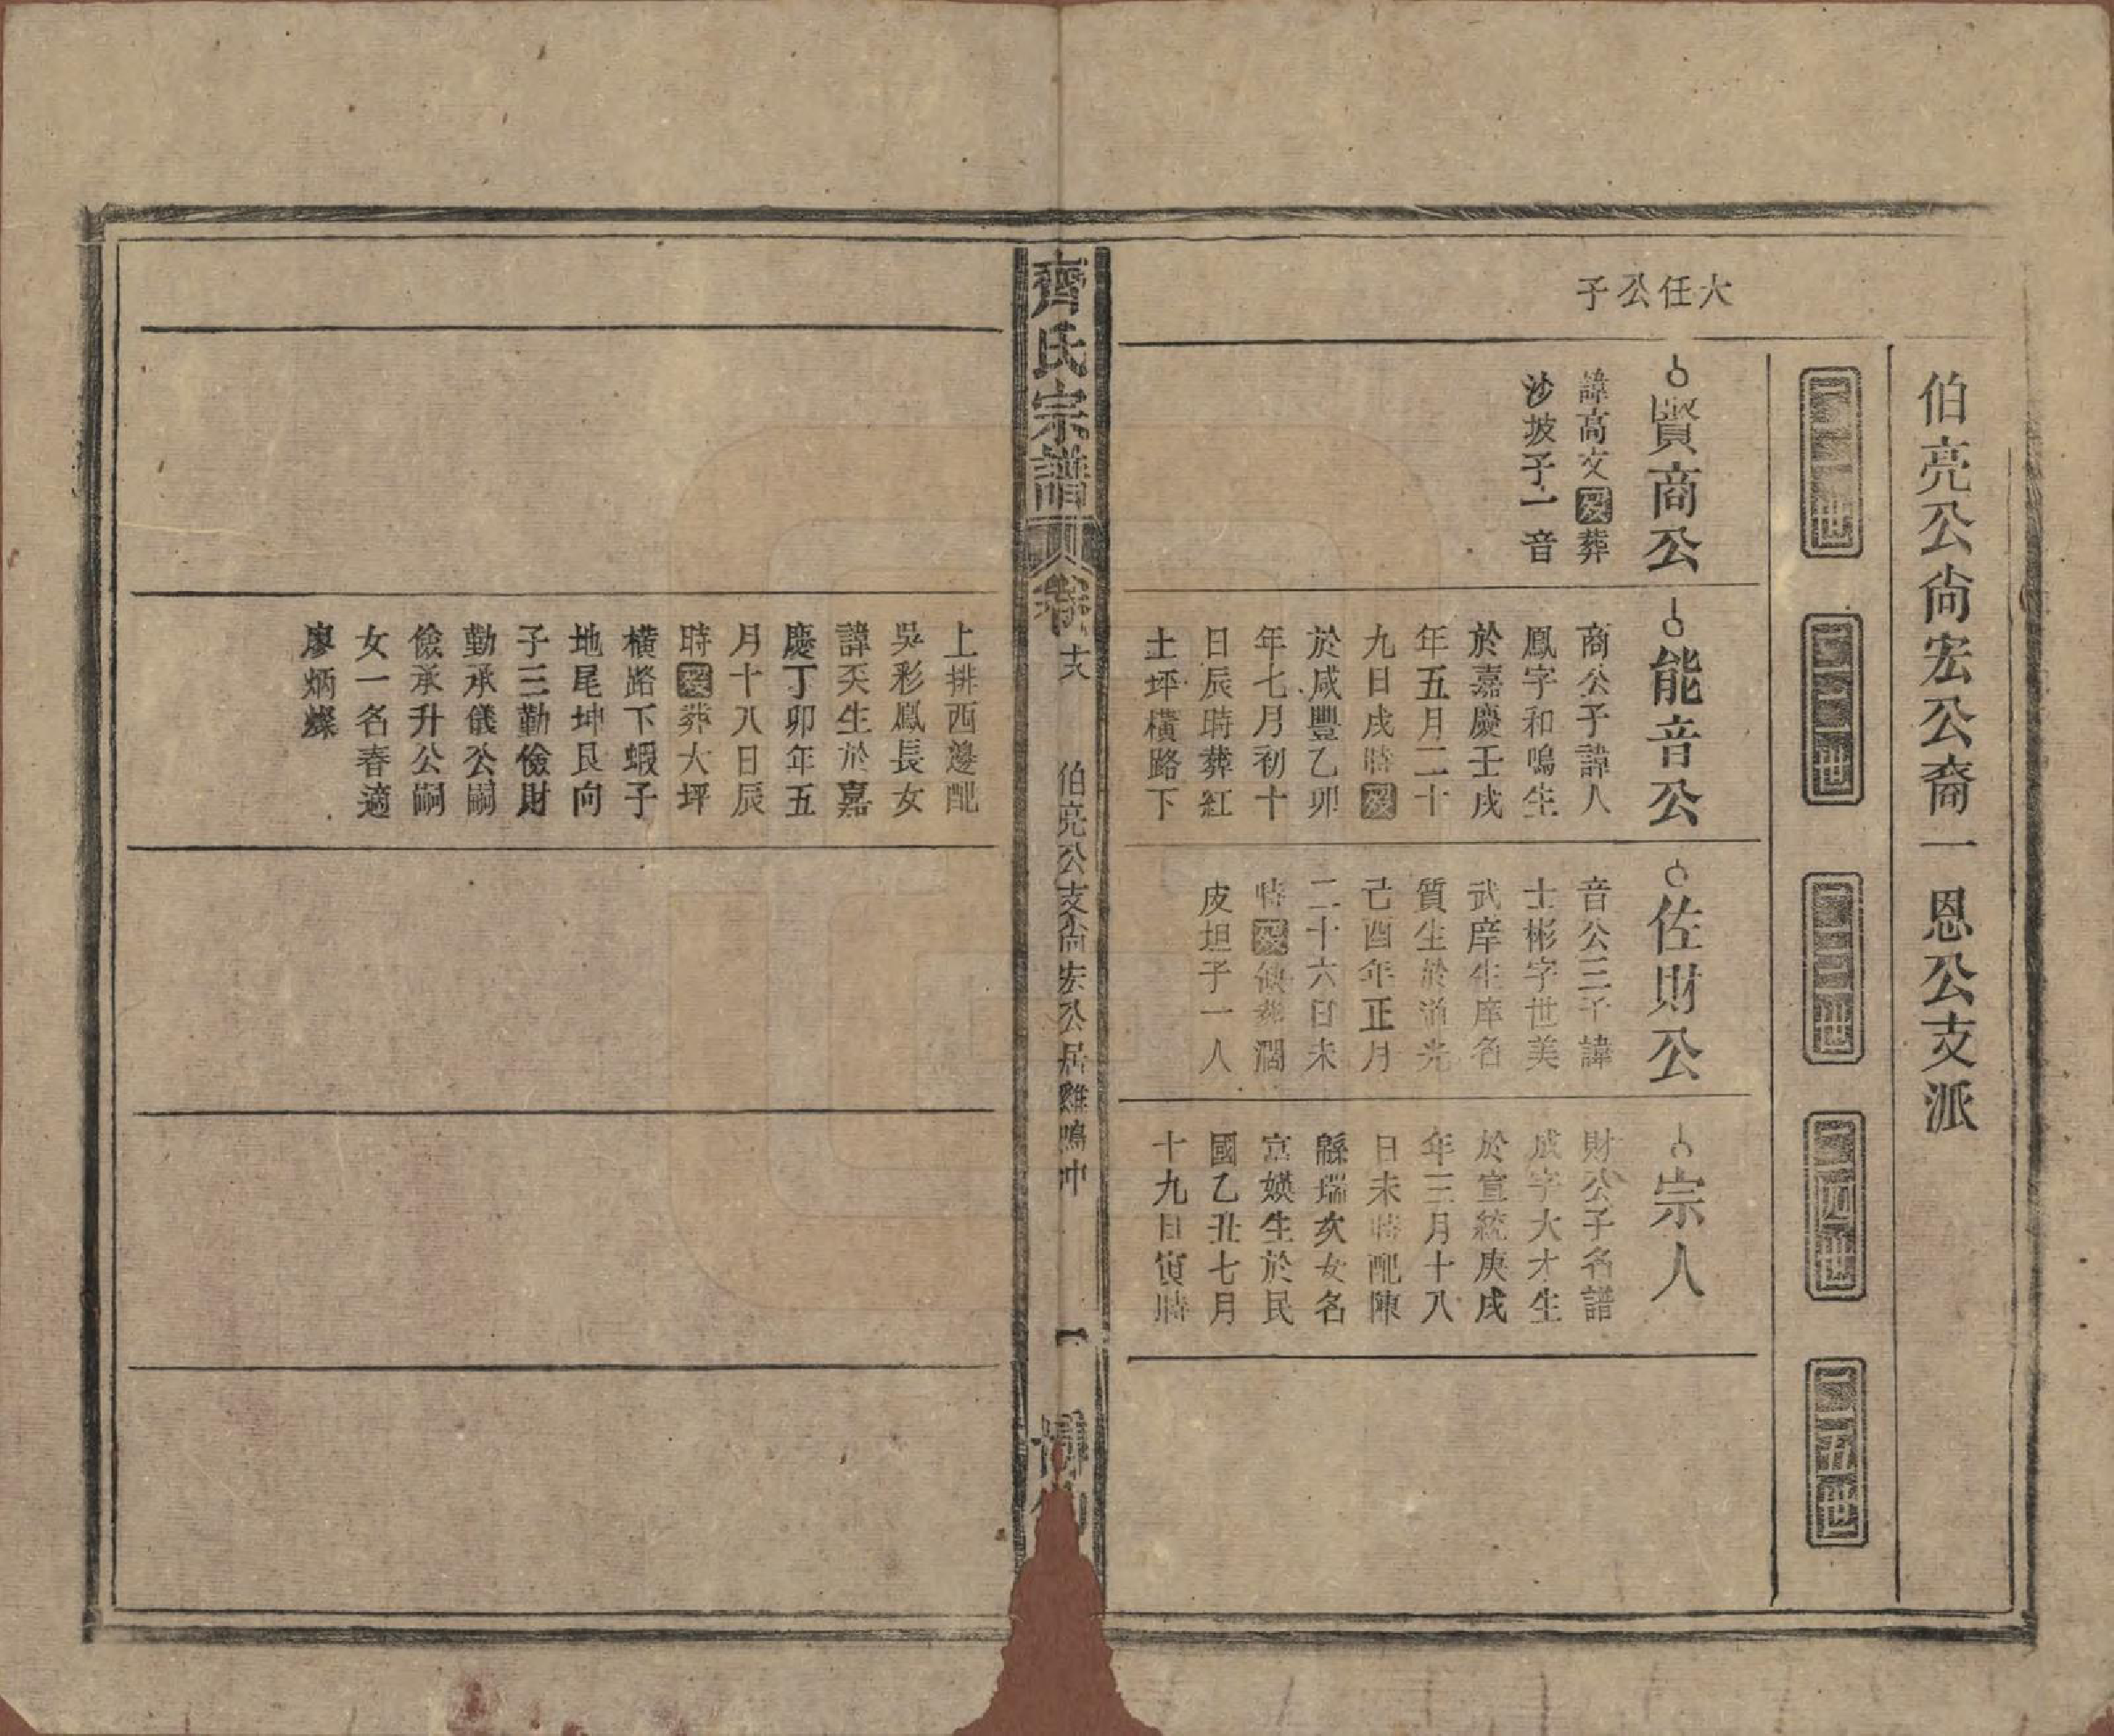 伯亮公尚宏公裔一恩公支派
二一世
二二世
二三世
二四世
二五世
大任公子
賢商公
諱高文歿葬
沙坡子一音
能音公
商公子諱人
鳳字和鳴生
於嘉慶壬戌
年五月二十
九日戌時歿
於咸豐乙卯
年七月初十
日辰時葬紅
土坪橫路下
佐財公
音公三子諱
士彬字世美
武庠生庠名
質生於道光
己酉年正月
二十六日未
時歿缺葬濶
皮坦子一人
宗人
財公子名譜
成字大才生
於宣統庚戌
年三月十八
日未時配陳
縣瑞女名
富媖生於民
國乙丑七月
十九日寅時
齊氏宗譜
卷
伯亮公支尚宏公居雞鳴冲
一
博
上排西邊配
吳彩鳳長女
諱生於嘉
慶丁卯年五
月十八日辰
時歿葬大坪
橫路下蝦子
地尾坤艮向
子三勤儉財
勤承儀公嗣
儉承升公嗣
女一名春適
廖炳燦